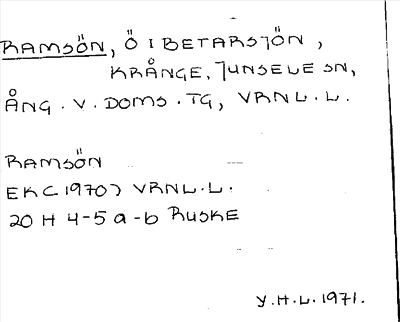 RAMSÖN, Ö I BETARSJÖN,
KRÅNGE, JUNSELE SN,
ÅNG. V. DOMS. TG, VRNL. L.
RAMSÖN
EK (1970) VRNL. L.
20 H 4-5 a-b RUSKE
Y. H. L. 1971.